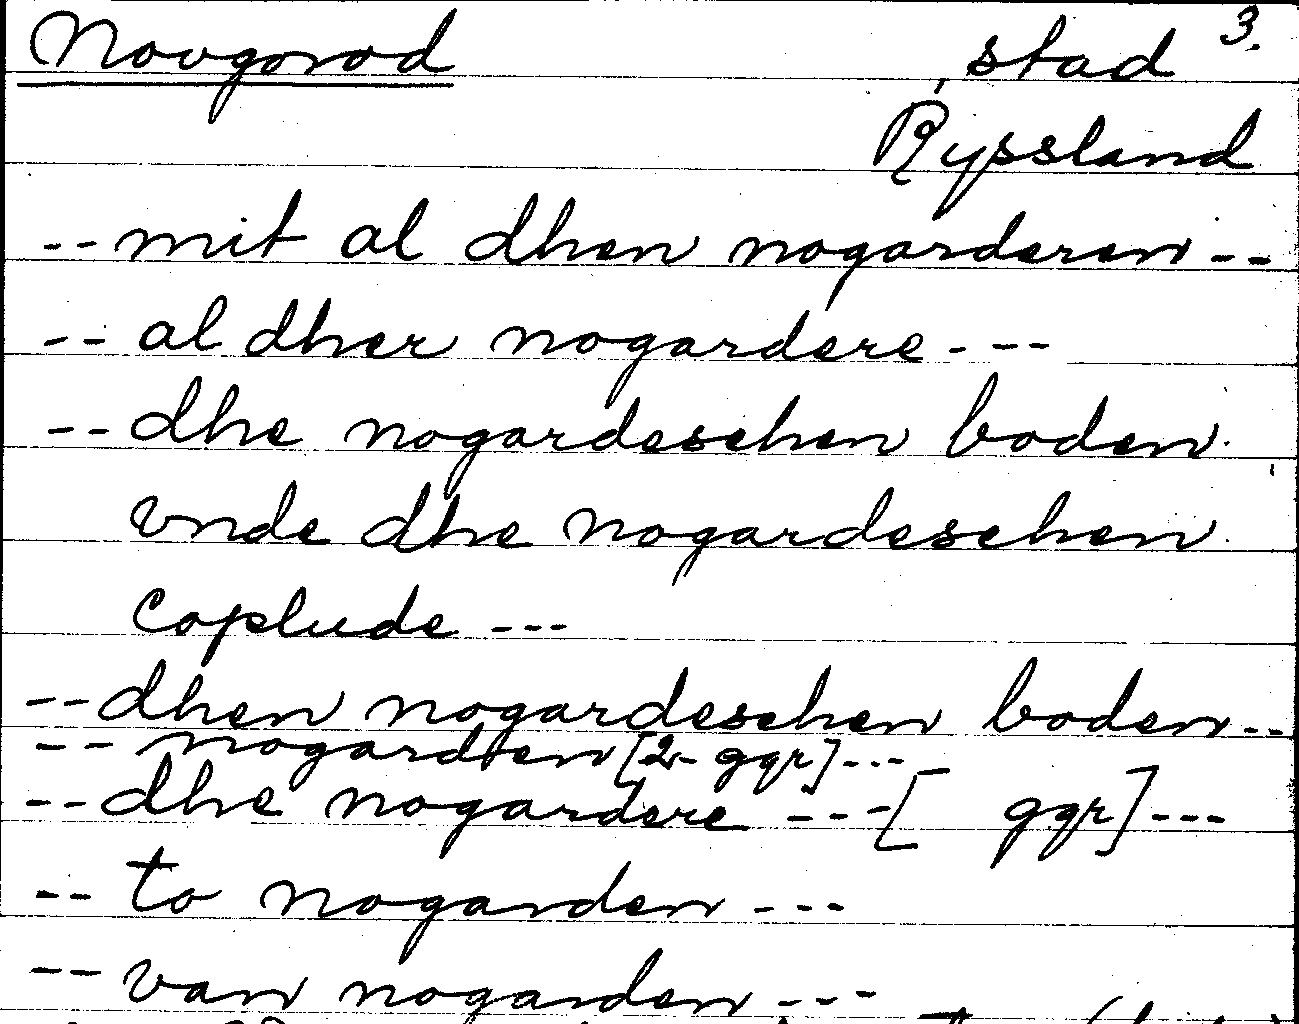 Novgorod , stad 3.
Ryssland
-- mit al dhen nogarderen --
-- al dher nogardere - --
-- dhe nogardeschen boden
vnde dhe nogardeschen
coplude ---
-- dhen nogardeschen boden --
-- nogardien [2 ggr] ---
-- dhe nogardere --- [ ggr] ---
-- to nogarden ---
-- van nogarden ---